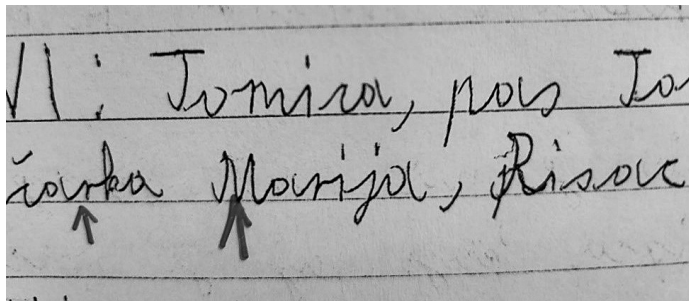 VI: Tomica, pas To
čarka Marija, Risac